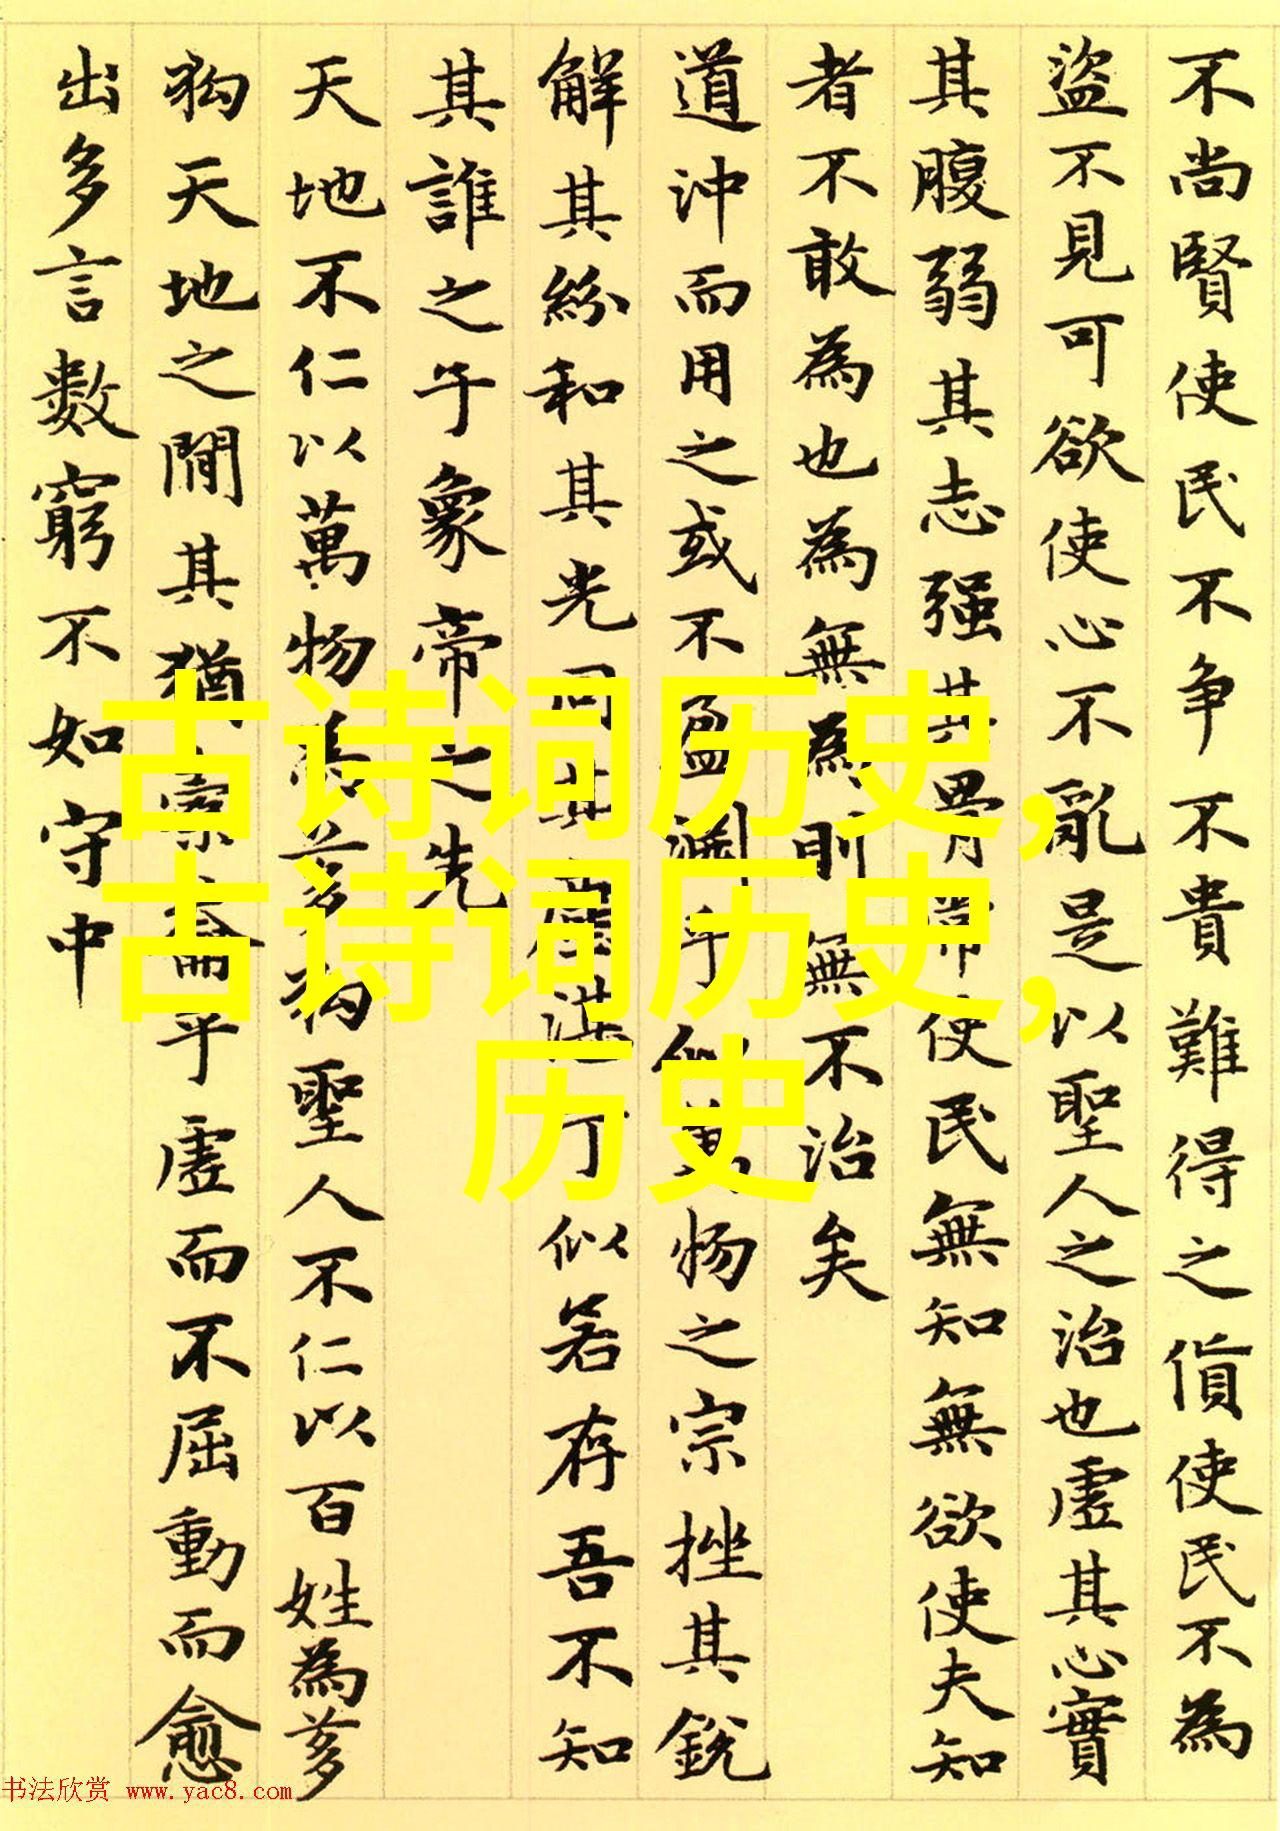 不尚賢使民不争不貴難得之貨使民不為
盜不見可欲使心不亂是以聖人之治也虛其心實
其腹弱其志强其骨常使民無知無欲使夫知
者不敢為也為無為則無不治矣
道沖而用之或不盈淵乎似萬物之宗挫其銳
解其紛和其光同其塵湛兮似若存吾不知
其誰之子象帝之先
天地不仁以萬物為芻狗聖人不仁以百姓為芻
狗天地之間其猶橐籥乎虛而不屈動而愈
出多言數窮不如守中
古诗词历史,
古诗词历史,
历史
书法欣赏 www.yac8.com